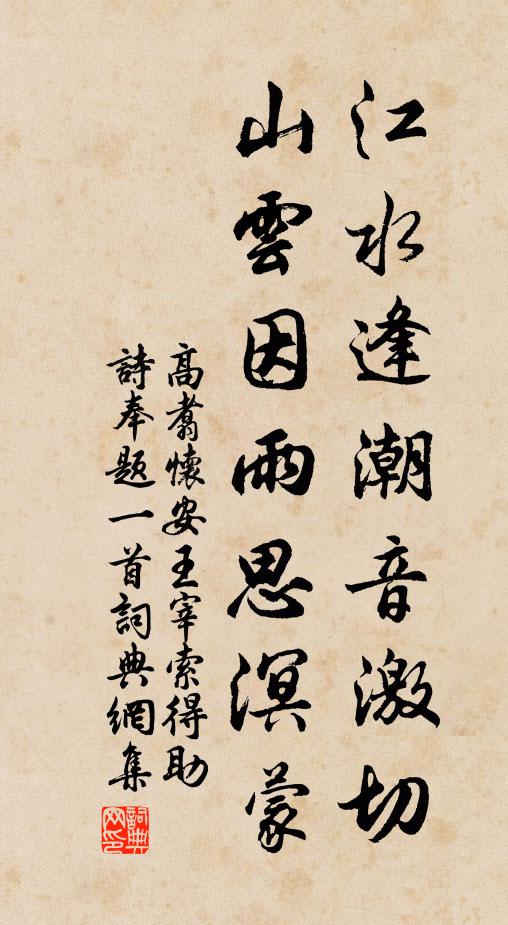 江水逢潮音激切
山雲因雨思溟蒙
高翥懷安王宰索得助
詩奉题一首詞典網集
詞典网印